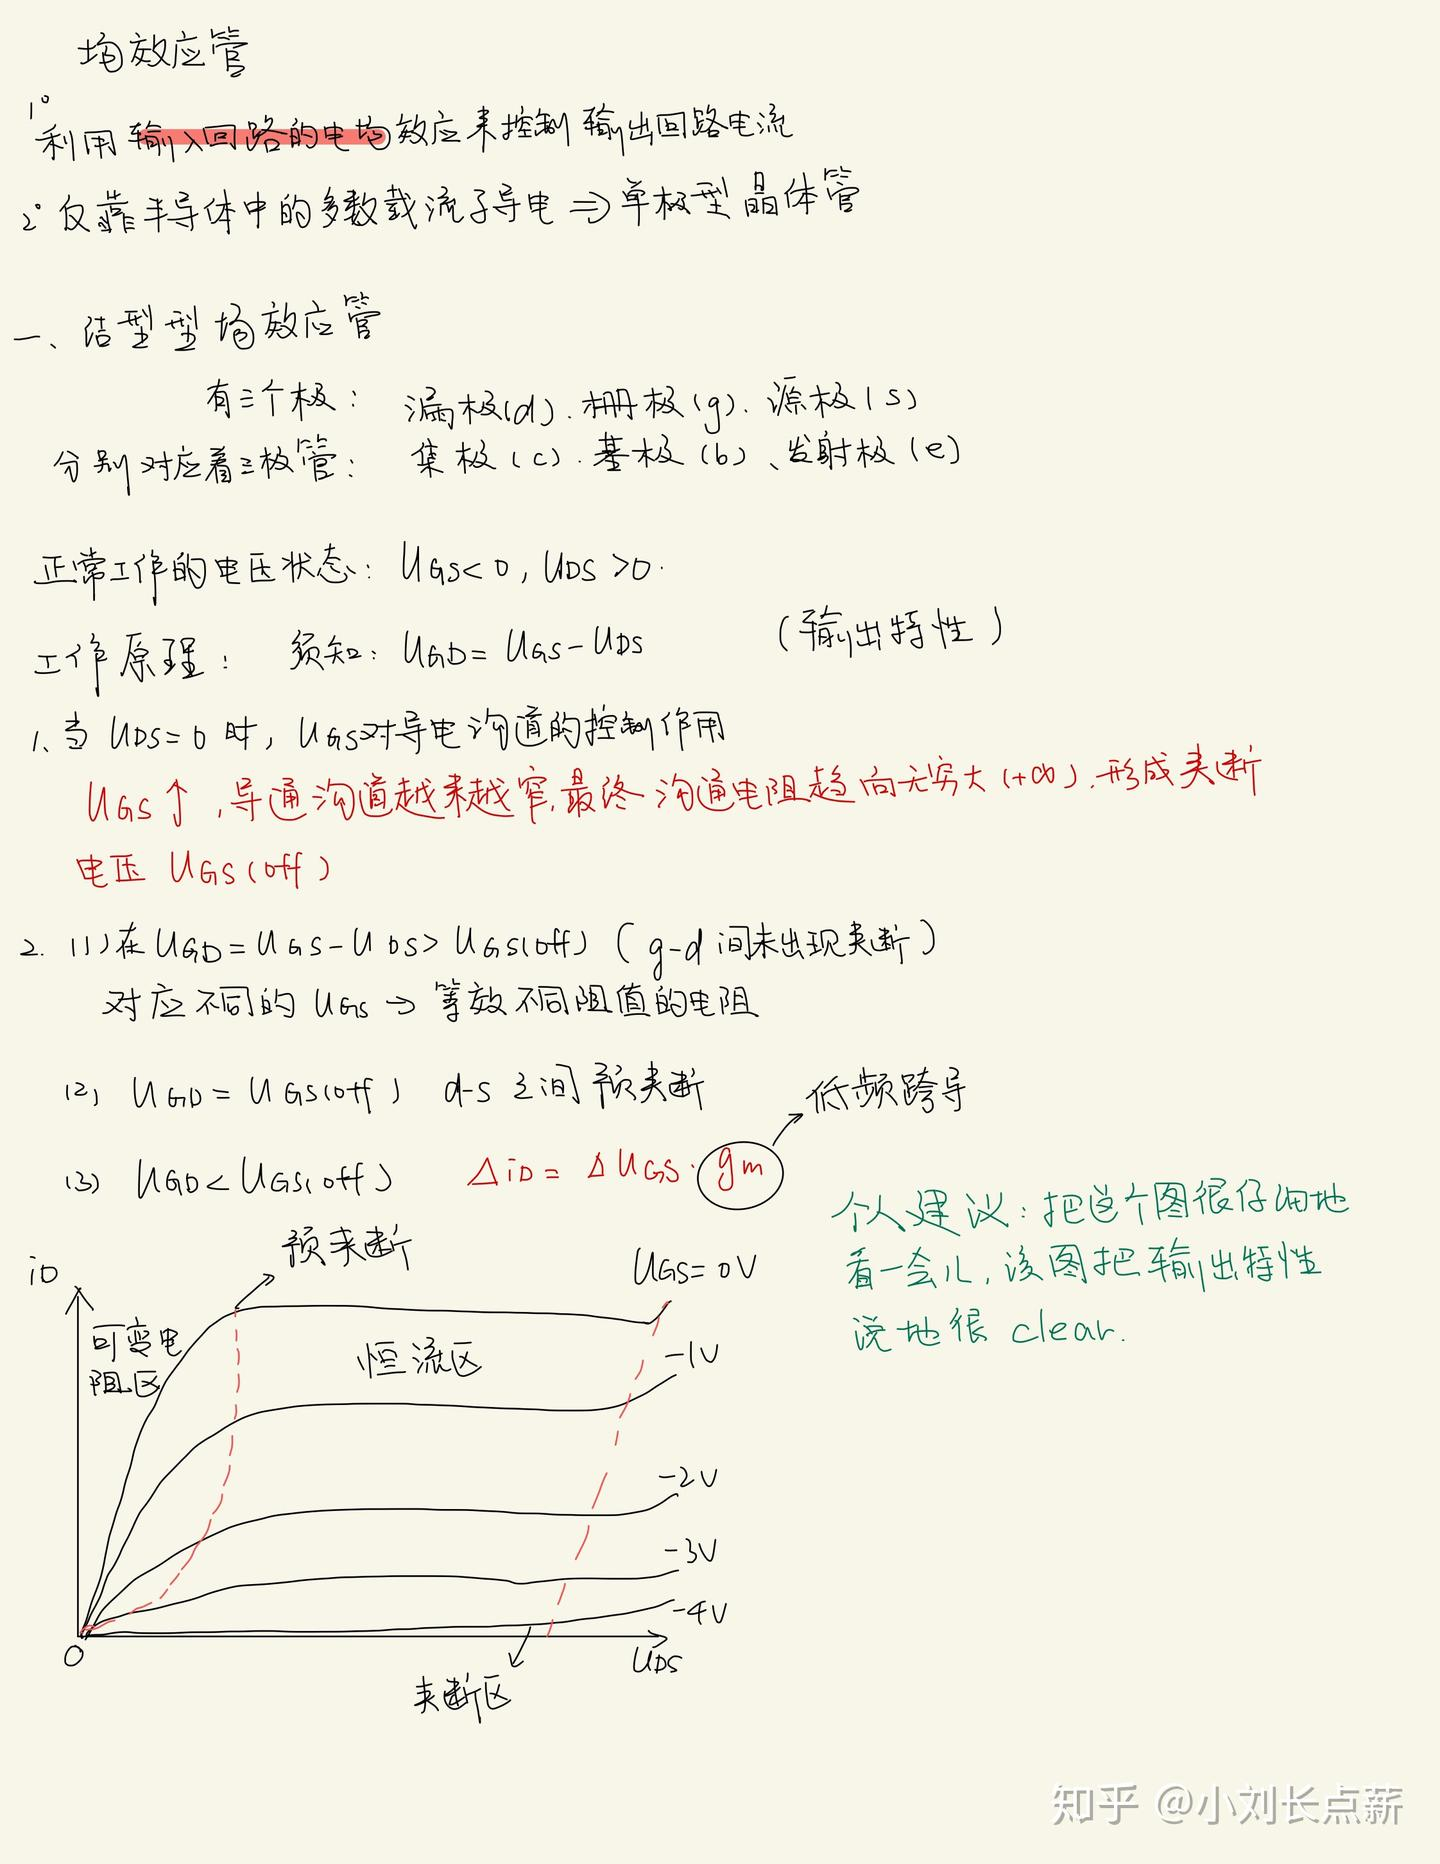 场效应管
1° 利用输入回路的电场效应来控制输出回路电流
2° 仅靠半导体中的多数载流子导电 ⇒ 单极型晶体管
一、结型型场效应管
有三个极: 漏极(d).栅极(g).源极(s)
分别对应着三极管: 集极(c).基极(b)、发射极(e)
正常工作的电压状态: UGS<0, UDS>0.
工作原理: 须知: UGD=UGS-UDS (输出特性)
1、当UDS=0时, UGS对导电沟道的控制作用
UGS↑,导通沟道越来越窄,最终沟通电阻趋向无穷大(+∞).形成夹断
电压 UGS(off)
2. (1)在UGD=UGS-UDS>UGS(off) (g-d间未出现夹断)
对应不同的UGS→等效不同阻值的电阻
(2) UGD=UGS(off) d-s之间预夹断
低频跨导
(3) UGD<UGS(off) ΔiD=ΔUGS·gm
个人建议:把这个图很仔细地
看一会儿,该图把输出特性
说地很 clear.
预夹断
iD
UGS=0V
可变电
阻区
恒流区
-1V
-2V
-3V
-4V
O
UDS
夹断区
知乎 @小刘长点薪